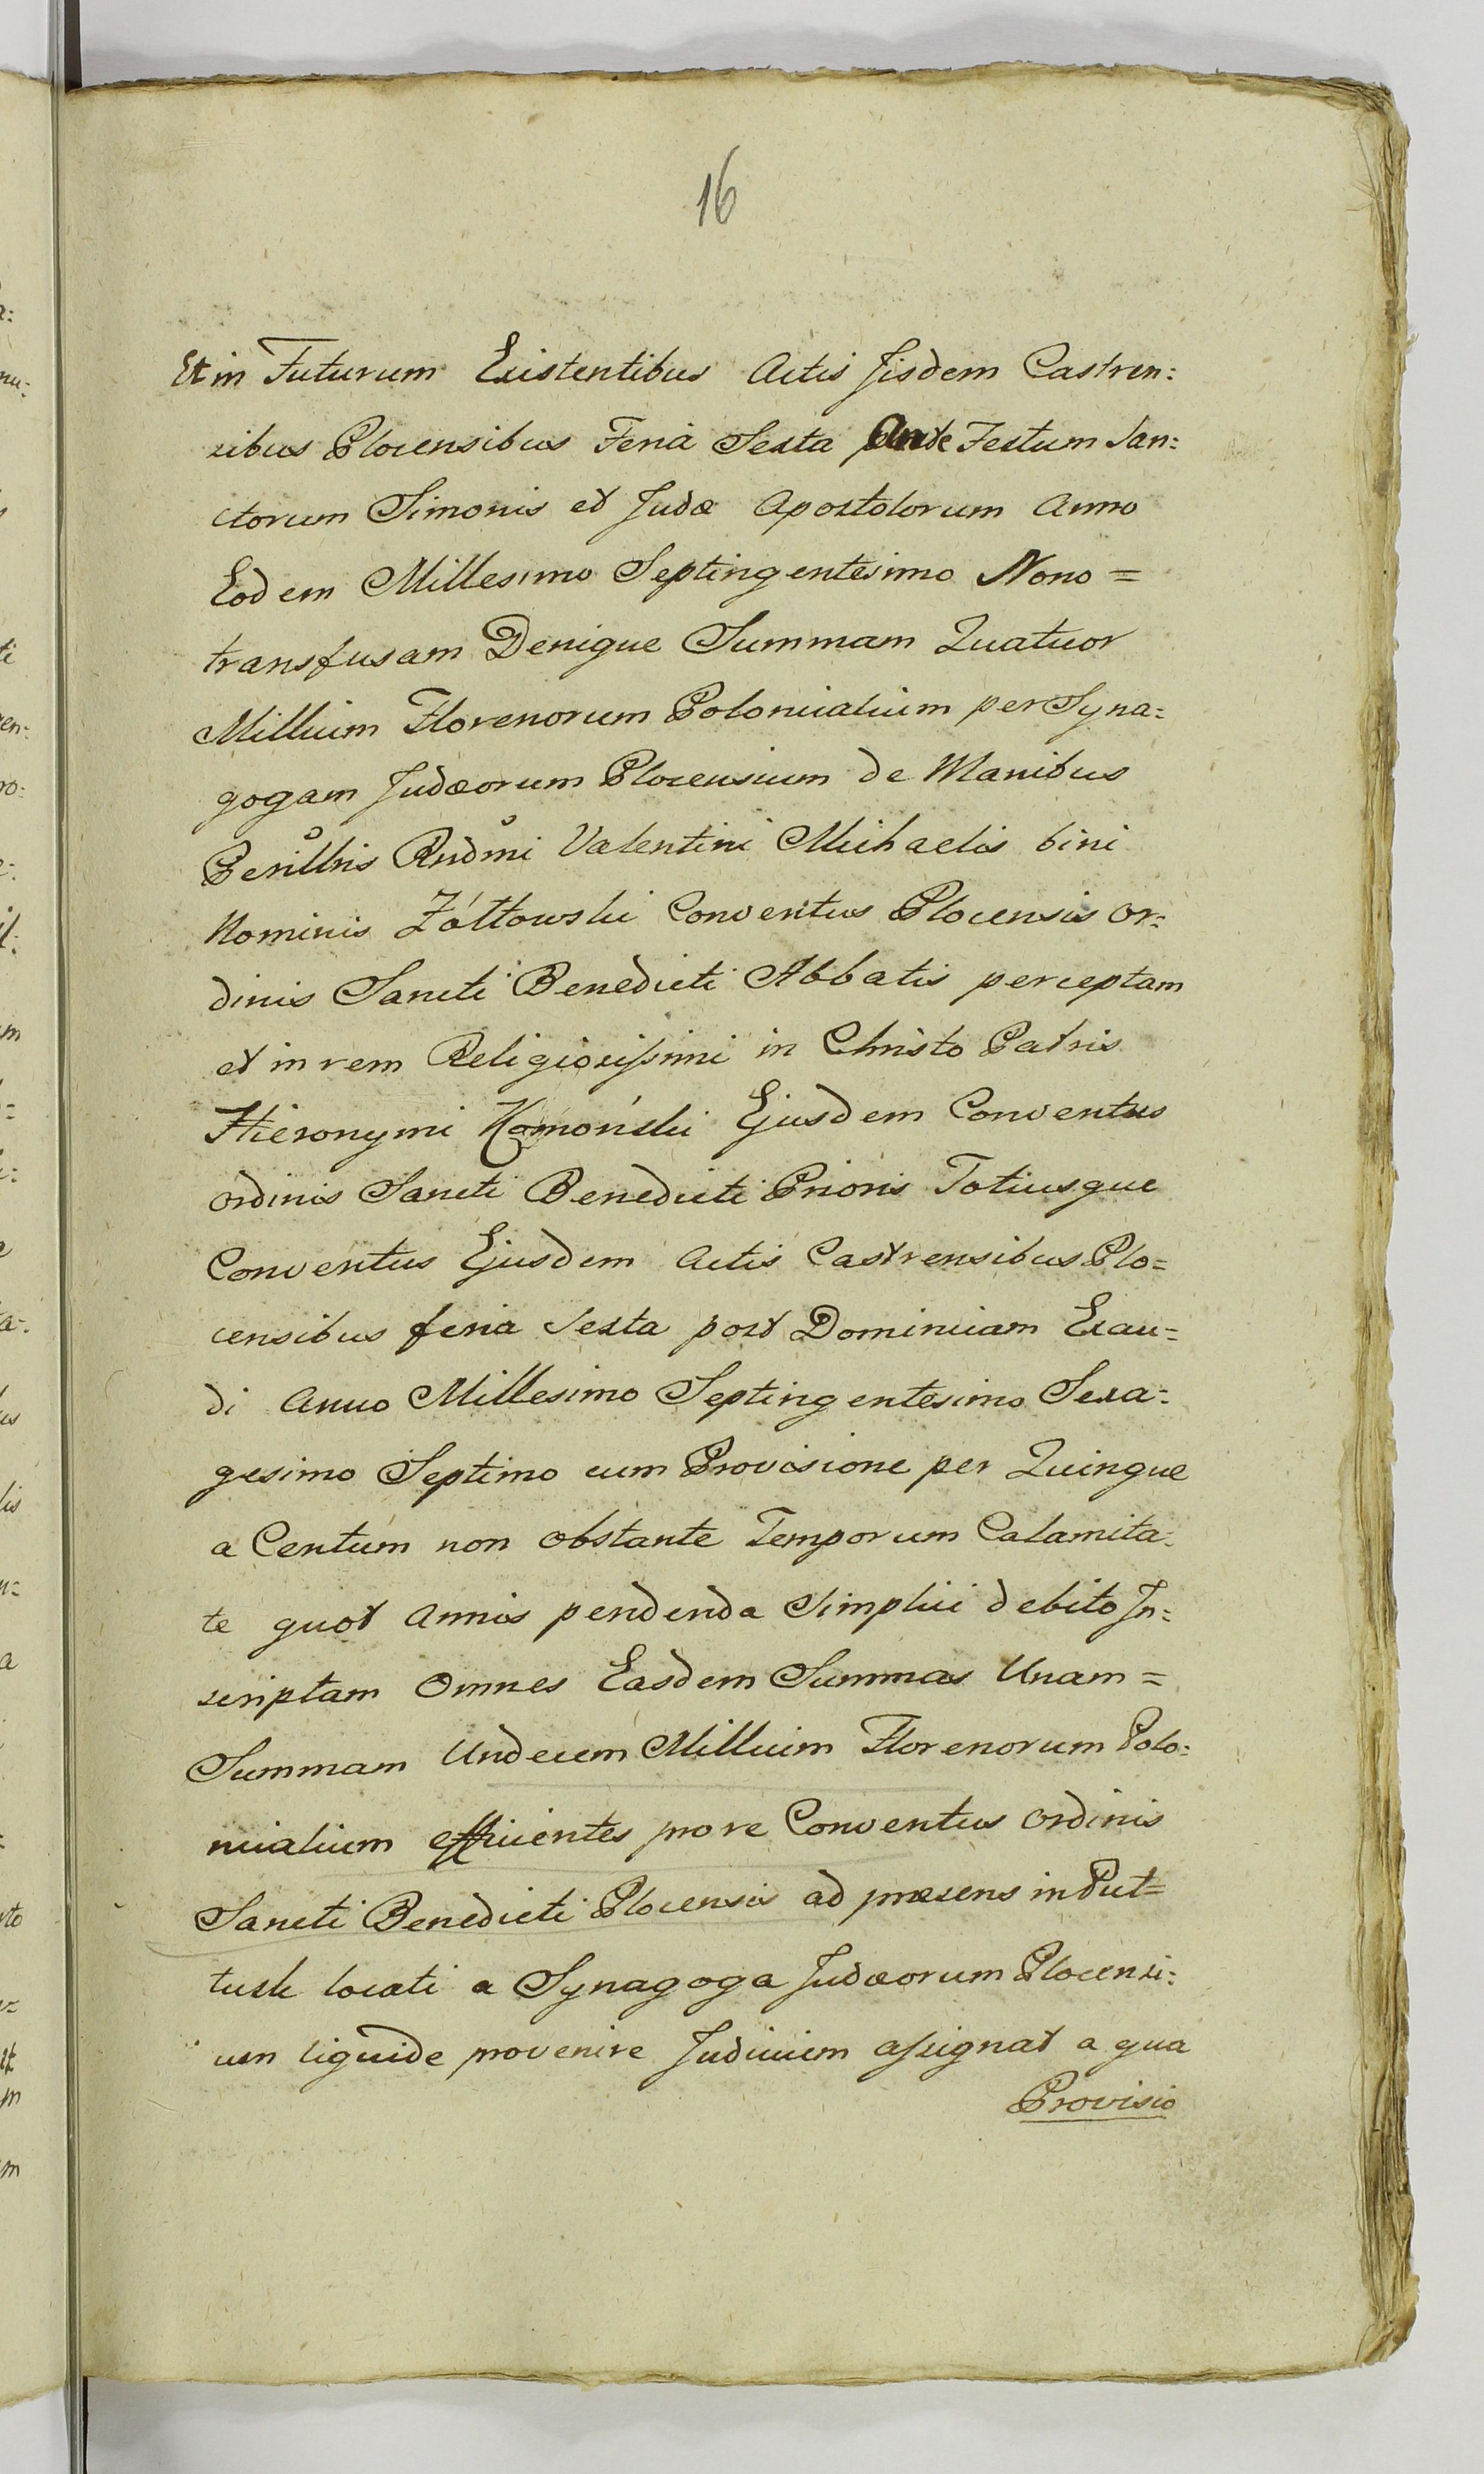 16
Et in Futurum Existentibus Actis Iisdem Castren:
sibus Plocensibus Feria Sexta Ante Festum San:
ctorum Simonis et Judæ Apostolorum Anno
Eodem Millesimo Septingentesimo Nono =
transfusam Denique Summam Quatuor
Millium Florenorum Polonicalium per Syna:
gogam Judæorum Plocensium de Manibus
Perillris Rndmi Valentini Michaelis bini
Nominis Żółtowski Conventus Plocensis Or:
dinis Sancti Benedicti Abbatis perceptam
et in rem Religiosissimi in Christo Patris
Hieronymi Komoński Ejusdem Conventus
Ordinis Sancti Benedicti Prioris Totiusque
Conventus Ejusdem Actis Castrensibus Plo=
censibus feria Sexta post Dominicam Exau=
di Anno Millesimo Septingentesimo Sexa:
gesimo Septimo cum Provisione per Quinque
a Centum non obstante Temporum Calamita:
te quot Annis pendenda Simplici debito In:
scriptam Omnes Easdem Summas Unam =
Summam Undecem Millium Florenorum Polo:
nicalium efficientes pro re Conventus Ordinis
Sancti Benedicti Plocensis ad præsens in Put=
tusk locati a Synagoga Judæorum Plocensi:
um liquide provenire Judicium assignat a qua
Provisio